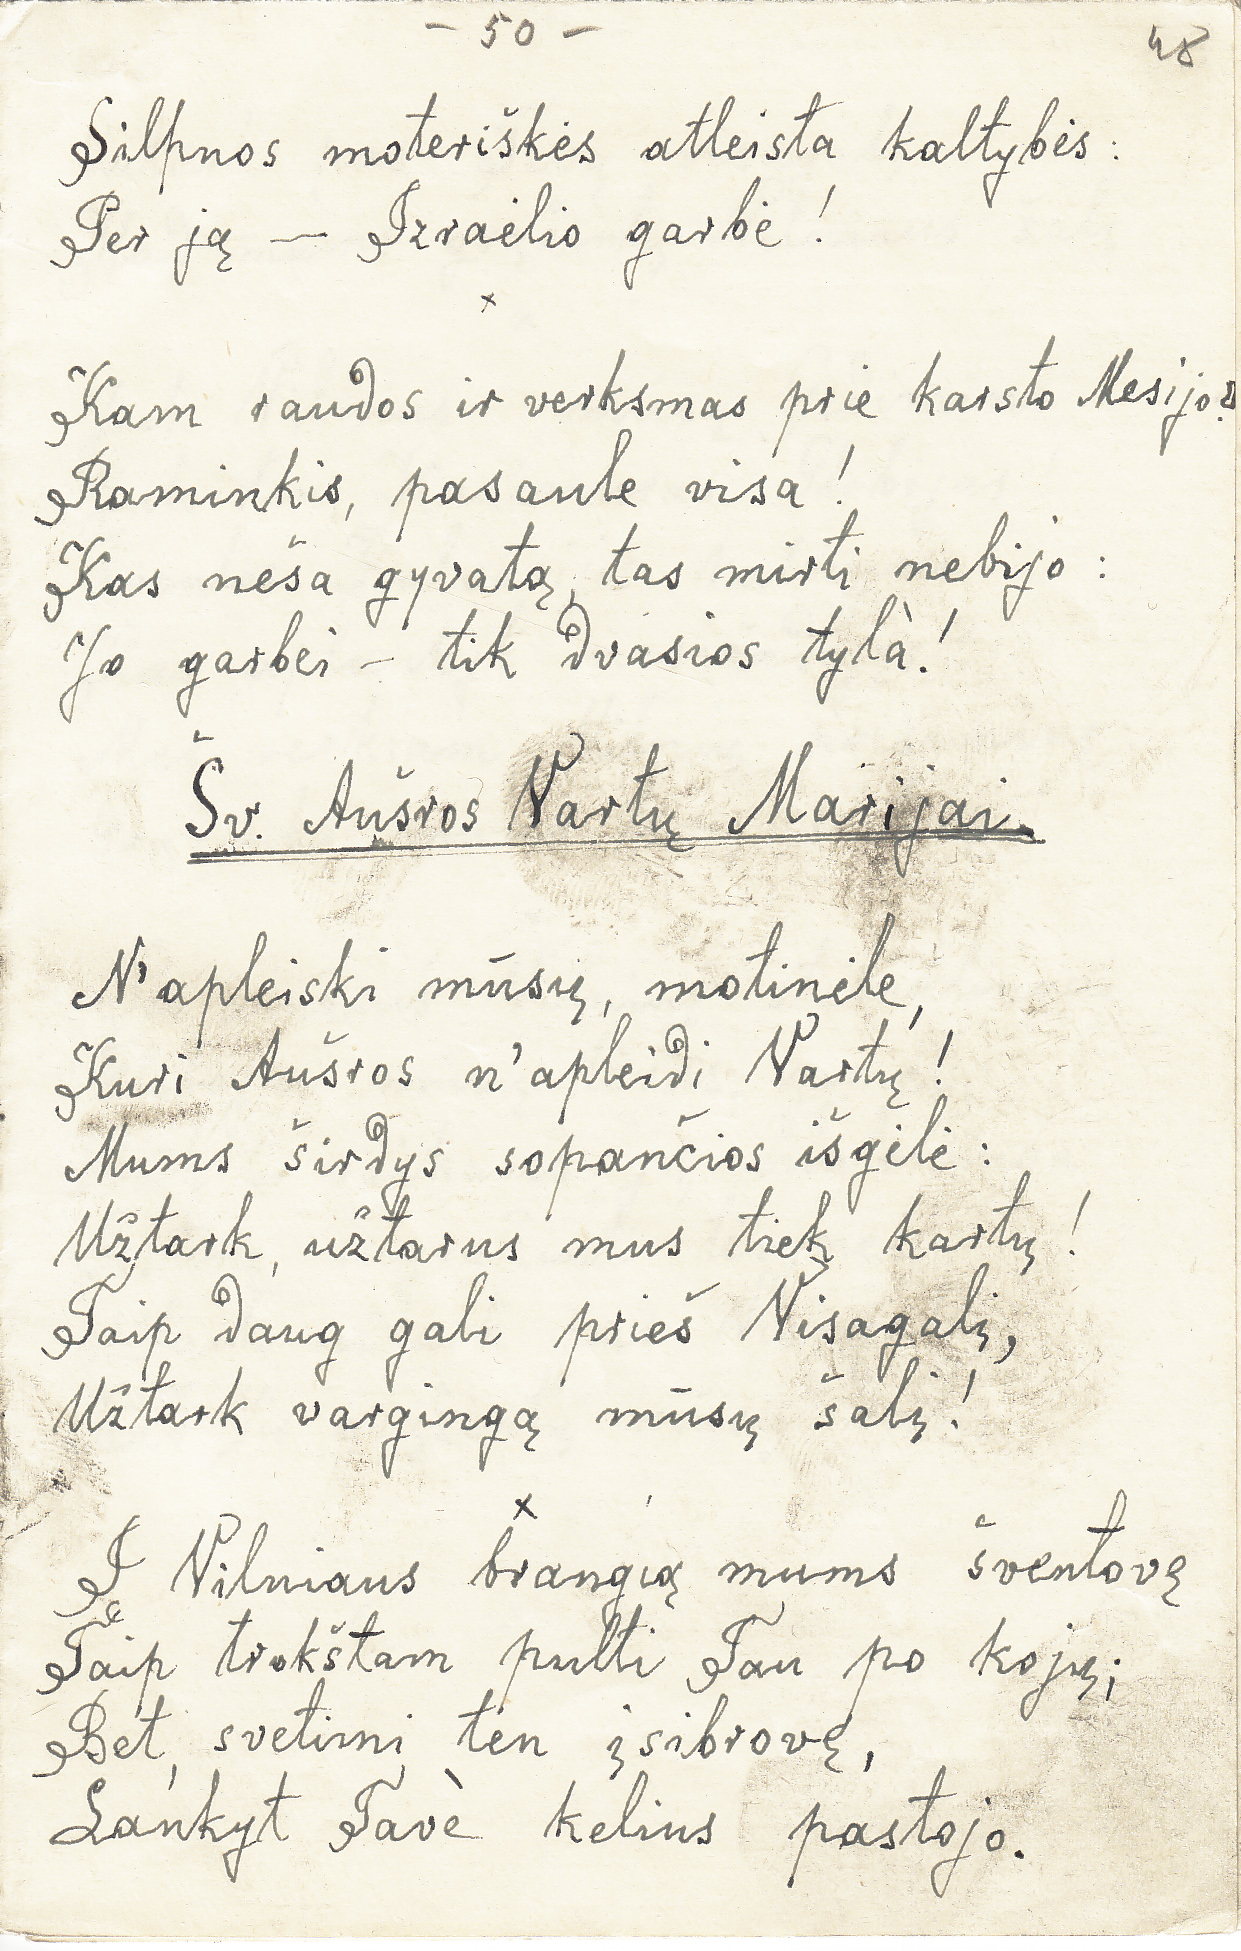 - 50 -
48
Silpnos moteriškės atleista kaltybės:
Per ją — Izraėlio garbė!
x
Kam raudos ir verksmas prie karsto Mesijo?
Raminkis, pasaule visa!
Kas neša gyvatą, tas mirti nebijo:
Jo garbei – tik dvasios tylà!
Šv. Aušros Vartų Marijai.
N'apleiski mūsų, motinėle,
Kuri Aušros n'apleidi Vartų!
Mums širdys sopančios išgėlė:
Užtark, užtarus mus tiek kartų!
Taip daug gali prieš Visagalį,
Užtark vargingą mūsų šalį!
x
Į Vilniaus brangią mums šventovę
Taip trokštam pulti Tau po kojų;
Bet, svetimi ten įsibrovę,
Lankyt Tavè kelius pastojo.